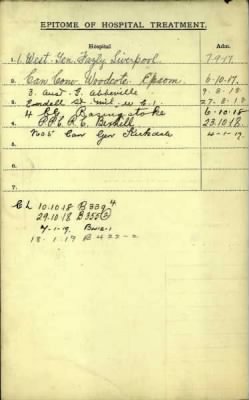 EPITOME OF HOSPITAL TREATMENT.
Hospital Adm.
1. West. Gen. Fazly Liverpool 7.9.17.
2. Can Conv Woodcote. Epsom 6.10.17.
3. Aust. G. Abbeville 9.8.18
3. Endell St. Mil. W.C.1. 27.8.18
4. 4 CG Basingstoke 6.10.18
5. P.P.C.R.C. Bexhill 23.10.18
6. No 5 Can Gen Kirkdale 4-1-19.
7.
CL 10.10.18 B339 4
29.10.18 B355 2
7-1-19. B
13.1.19 B 422-2